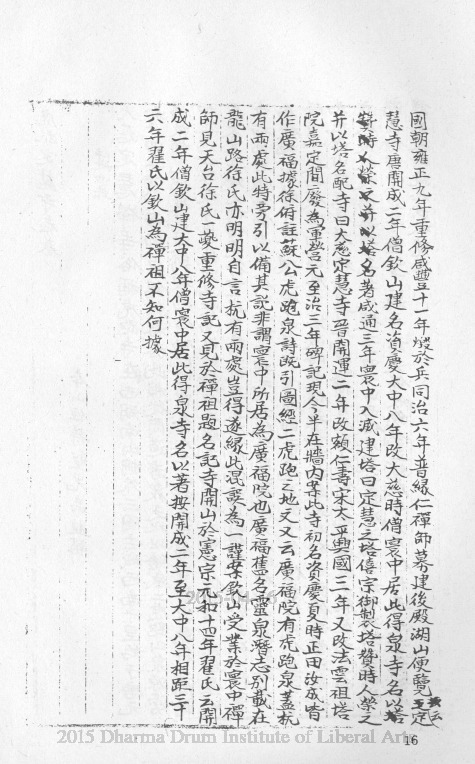 國朝雍正九年重修咸豐十一年燬於兵同治六年普緣仁禪師募建後殿湖山便覽云定
慧寺唐開成二年僧欽山建名資慶大中八年改大慈時僧寰中居此得泉寺名以
著咸通三年寰中入滅建塔曰定慧之塔僖宗御製塔贊時人榮之
并以塔名配寺曰大慈定慧寺晉開運二年改額仁壽宋太平興國三年又改法雲祖塔
院嘉定間廢為軍營元至治三年碑記現今半在牆內案此寺初名資慶夏時正田汝成皆
作廣福據徐俯註蘇公虎跑泉詩既引圖經二虎跑之地文又云廣福院有虎跑泉蓋杭
有兩處此特旁引以備其說非謂寰中所居為廣福院也廣福舊名靈泉潛志別載在
龍山路徐氏亦明明自言杭有兩處豈得遂緣此混誤為一謹案欽山受業於寰中禪
師見天台徐氏一夔重修寺記又見於禪祖題名記寺開山於憲宗元和十四年翟氏云開
成二年僧欽山建大中八年僧寰中居此得泉寺名以著按開成二年至大中八年相距二十
六年翟氏以欽山為禪祖不知何據
2015 Dharma Drum Institute of Liberal Arts
16